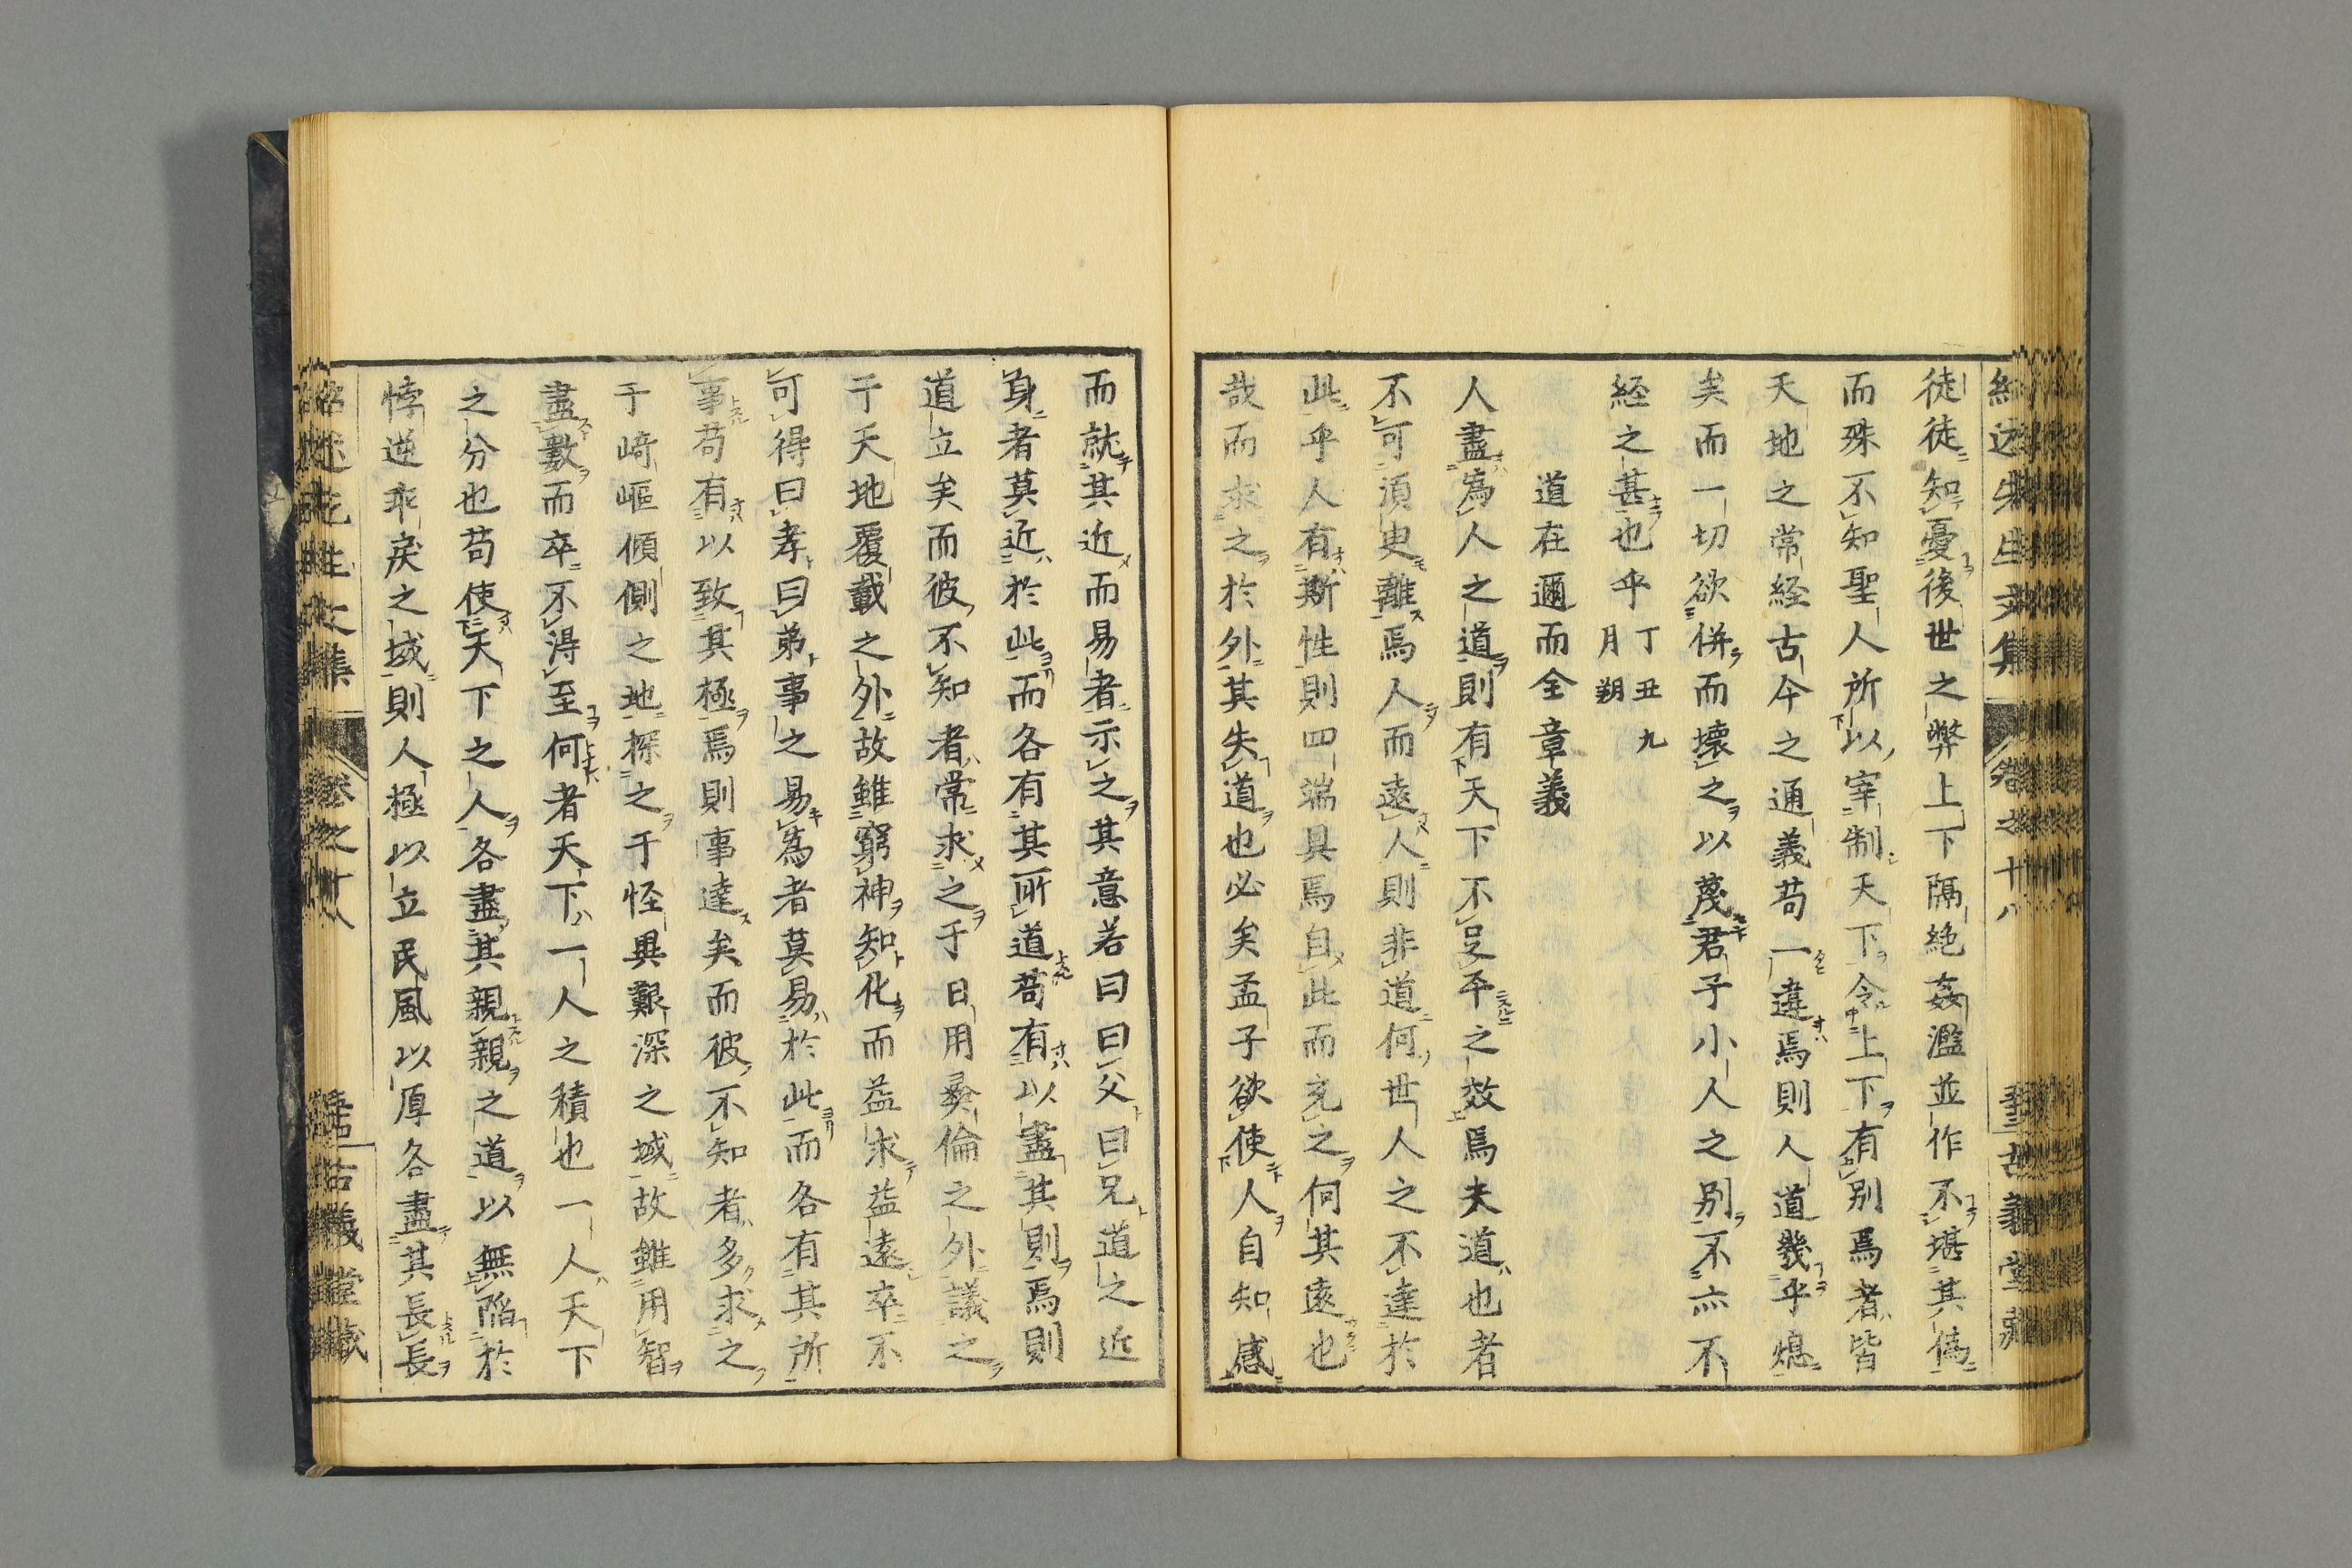 紹述先生文集 卷之十八 古義堂藏
徒徒知憂後世之弊上下隔絶姦濫並作不堪其僞
而殊不知聖人所以宰制天下令上下有別焉者皆
天地之常経古今之通義苟一違焉則人道幾乎熄
矣而一切欲併而壊之以蔑君子小人之別不亦不
経之甚也乎丁丑九月朔
道在邇而全章義
人盡爲人之道則有天下不足平之效焉夫道也者
不可須臾離焉人而遠人則非道何世人之不達於
此乎人有斯性則四端具焉自此而充之何其遠也
哉而求之於外其失道也必矣孟子欲使人自知感
而就其近而易者示之其意若曰曰父曰兄道之近
身者莫近於此而各有其所道苟有以盡其則焉則
道立矣而彼不知者常求之于日用彜倫之外議之
于天地覆載之外故雖窮神知化而益求益遠卒不
可得曰孝曰弟事之易爲者莫易於此而各有其所
事苟有以致其極焉則事達矣而彼不知者多求之
于崎嶇傾側之地探之于怪異艱深之域故雖用智
盡數而卒不得至何者天下一人之積也一人天下
之分也苟使天下之人各盡其親親之道以無陷於
悖逆乖戾之域則人極以立民風以厚各盡其長長
紹述先生文集 卷之十八 古義堂藏